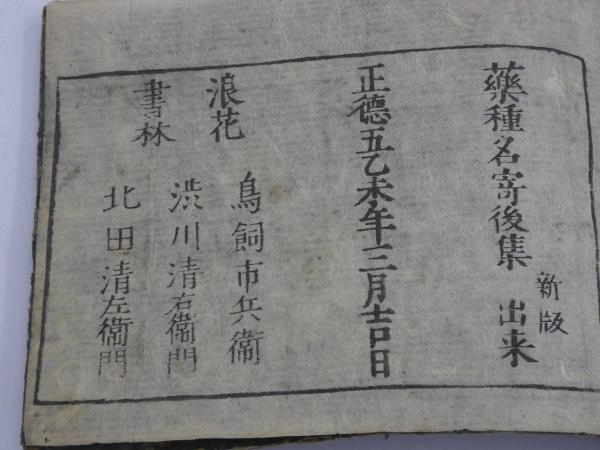 藥種名寄後集 新版 出来
正德五乙未年三月吉日
浪花
書林
鳥飼市兵衞
渋川清右衞門
北田清左衞門